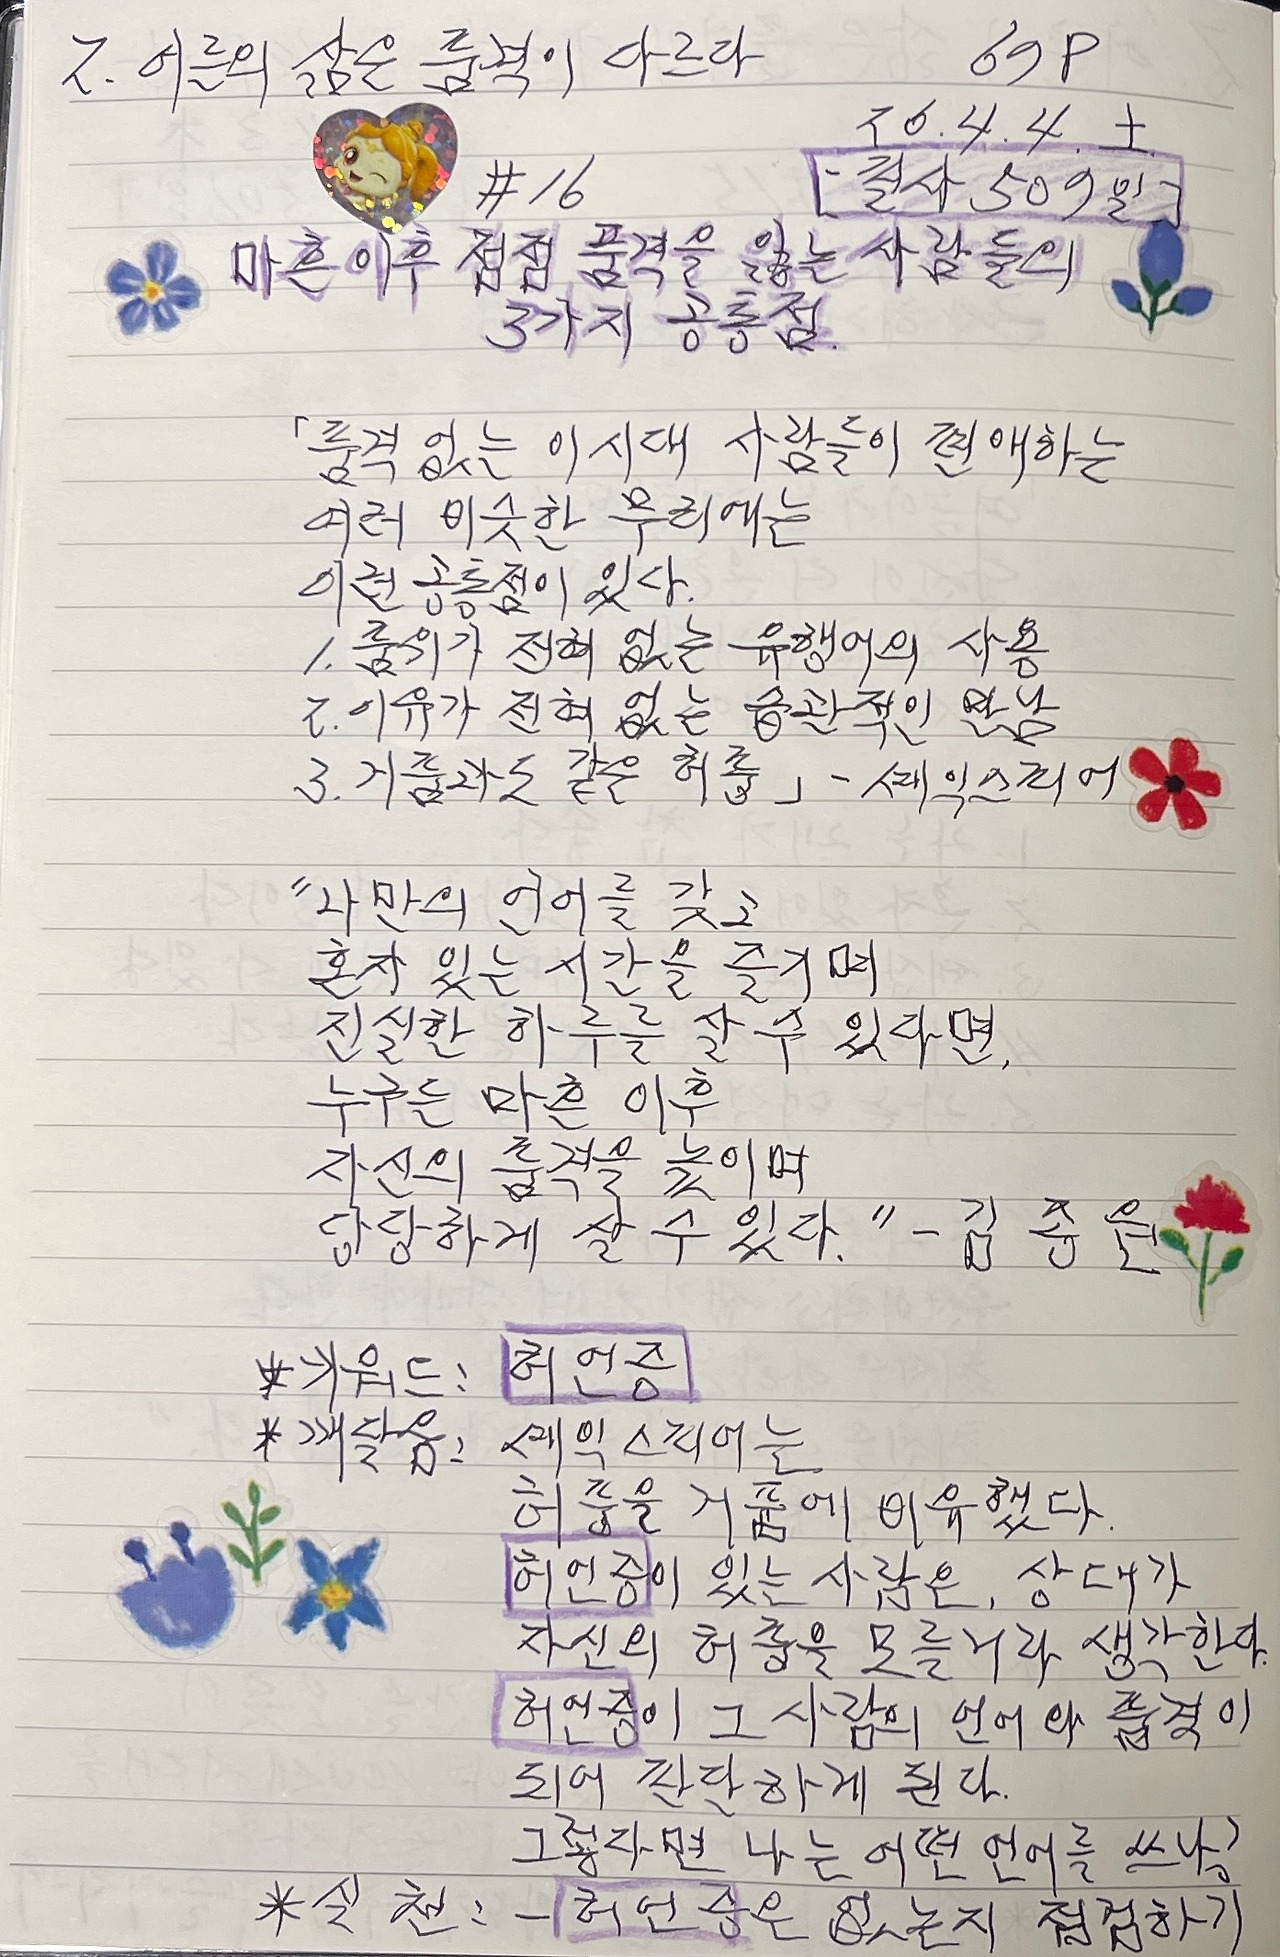 2. 어른의 삶은 품격이 다르다 69P
26.4.4. 土.
- 필사 509일 -
#16
마흔 이후 점점 품격을 잃는 사람들의
3가지 공통점.
「품격 없는 이 시대 사람들이 편애하는
여러 비슷한 무리에는
이런 공통점이 있다.
1. 품위가 전혀 없는 유행어의 사용
2. 이유가 전혀 없는 습관적인 만남
3. 거품과도 같은 허풍」 - 셰익스피어
"나만의 언어를 갖고
혼자 있는 시간을 즐기며
진실한 하루를 살 수 있다면,
누구든 마흔 이후
자신의 품격을 높이며
당당하게 살 수 있다." - 김 종 원
*키워드: 허언증
*깨달음: 셰익스피어는
허풍을 거품에 비유했다.
허언증이 있는 사람은, 상대가
자신의 허풍을 모를거라 생각한다.
허언증이 그 사람의 언어와 품격이
되어 판단하게 된다.
그렇다면 나는 어떤 언어를 쓰나?
*실 천: - 허언증은 없는지 점검하기